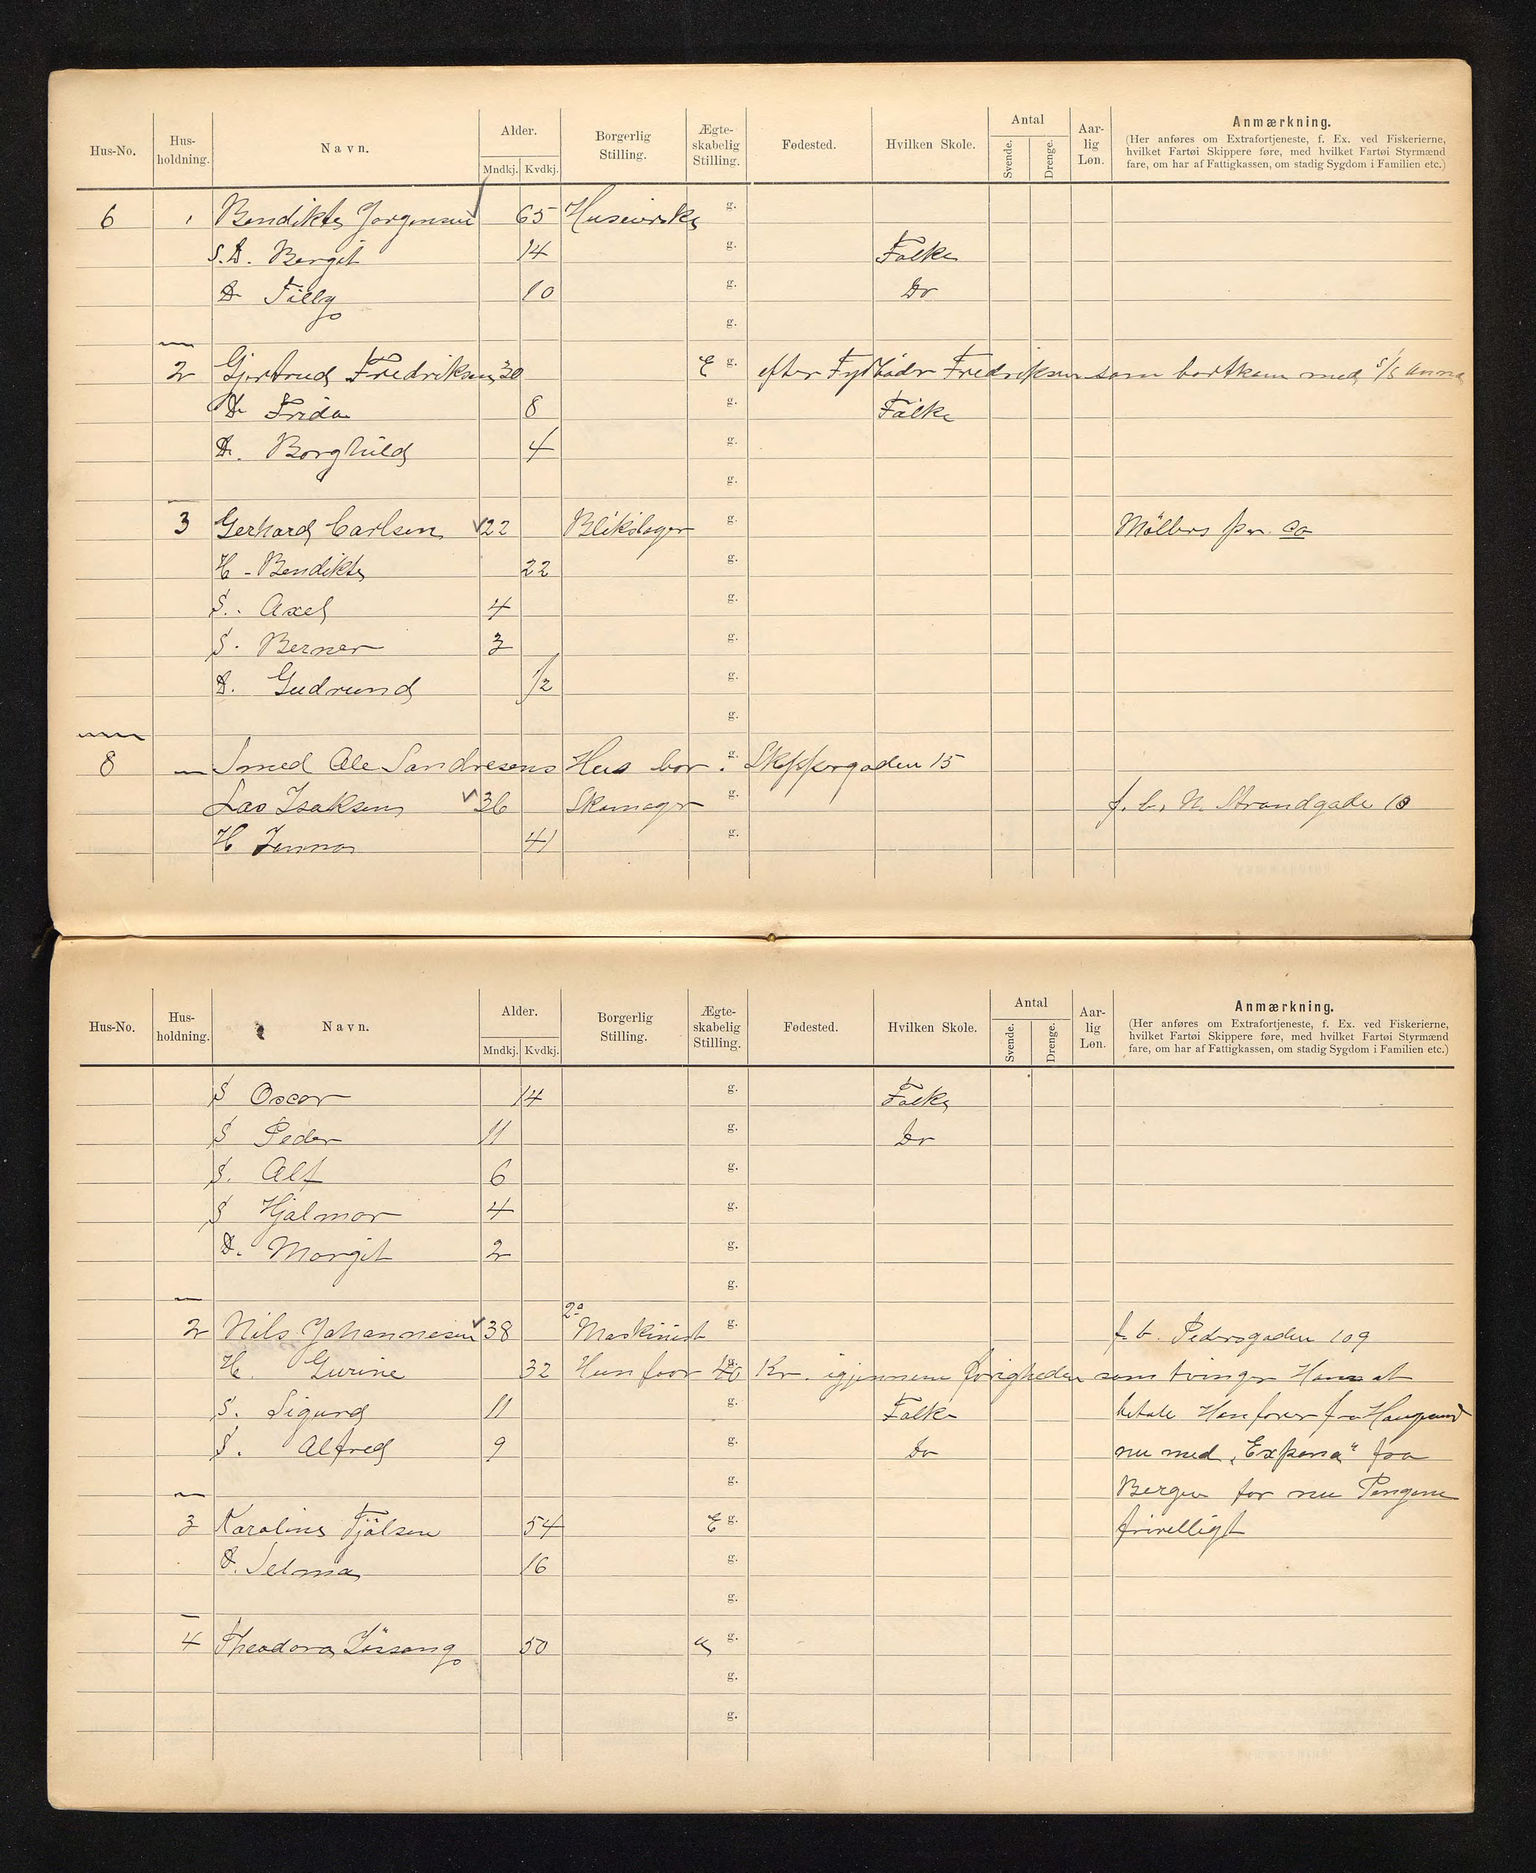 Hus-No. Hus-holdning. Navn. Alder. Mndkj. Kvdkj. Borgerlig Stilling. Ægte-skabelig Stilling. Fødested. Hvilken Skole. Antal Svende. Drenge. Aar-lig Løn. Anmærkning.
(Her anføres om Extrafortjeneste, f. Ex. ved Fiskerierne,
hvilket Fartøi Skippere føre, med hvilket Fartøi Styrmænd
fare, om har af Fattigkassen, om stadig Sygdom i Familien etc.)
6 1 Bendikte Jørgensen 65 g.
S. D. Bergit 14 g. Falke
D Tilly 10 g. Do
g.
2 Gjertrud Fredriksen 30 E g. efter Fyrbøder Fredriksen som bortkom med S/S Anna
D. Frida 8 g. Falke
D. Borghild 4 g.
g.
3 Gerhard Carlsen 22 Blikslager g. Møllers pr. Co
H - Bendikte 22 g.
S. Axel 4 g.
S. Berner 3 g.
D. Gudrund 1/2 g.
g.
8 Smed Ole Sandresens Hus bor g. Skippergaden 15
Las Isaksen 36 Skomager g. f. b. N. Strandgade 10
H Jenna 41 g.
Hus-No. Hus-holdning. Navn. Alder. Mndkj. Kvdkj. Borgerlig Stilling. Ægte-skabelig Stilling. Fødested. Hvilken Skole. Antal Svende. Drenge. Aar-lig Løn. Anmærkning.
(Her anføres om Extrafortjeneste, f. Ex. ved Fiskerierne,
hvilket Fartøi Skippere føre, med hvilket Fartøi Styrmænd
fare, om har af Fattigkassen, om stadig Sygdom i Familien etc.)
S Oscar 14 g. Falke
S Peder 11 g. Do
S. Alf 6 g.
S Hjalmar 4 g.
D. Margit 2 g.
g.
2 Nils Johannesen 38 2° Maskinist g. f. b. Pedersgaden 109
H. Gurine 32 Hun faar 40 g. Kr. igjennem som tvinger Ham at
S. Sigurd 11 g. Falke betale Han farer fra Haugesund
S. Alfred 9 g. Do nu med "Expona" fra
g. Bergen for nu Pengene
3 Karoline Fjälsen 54 E g. frivelligt
D. Selma 16 g.
g.
4 Theodora Jössang 50 u g.
g.
g.